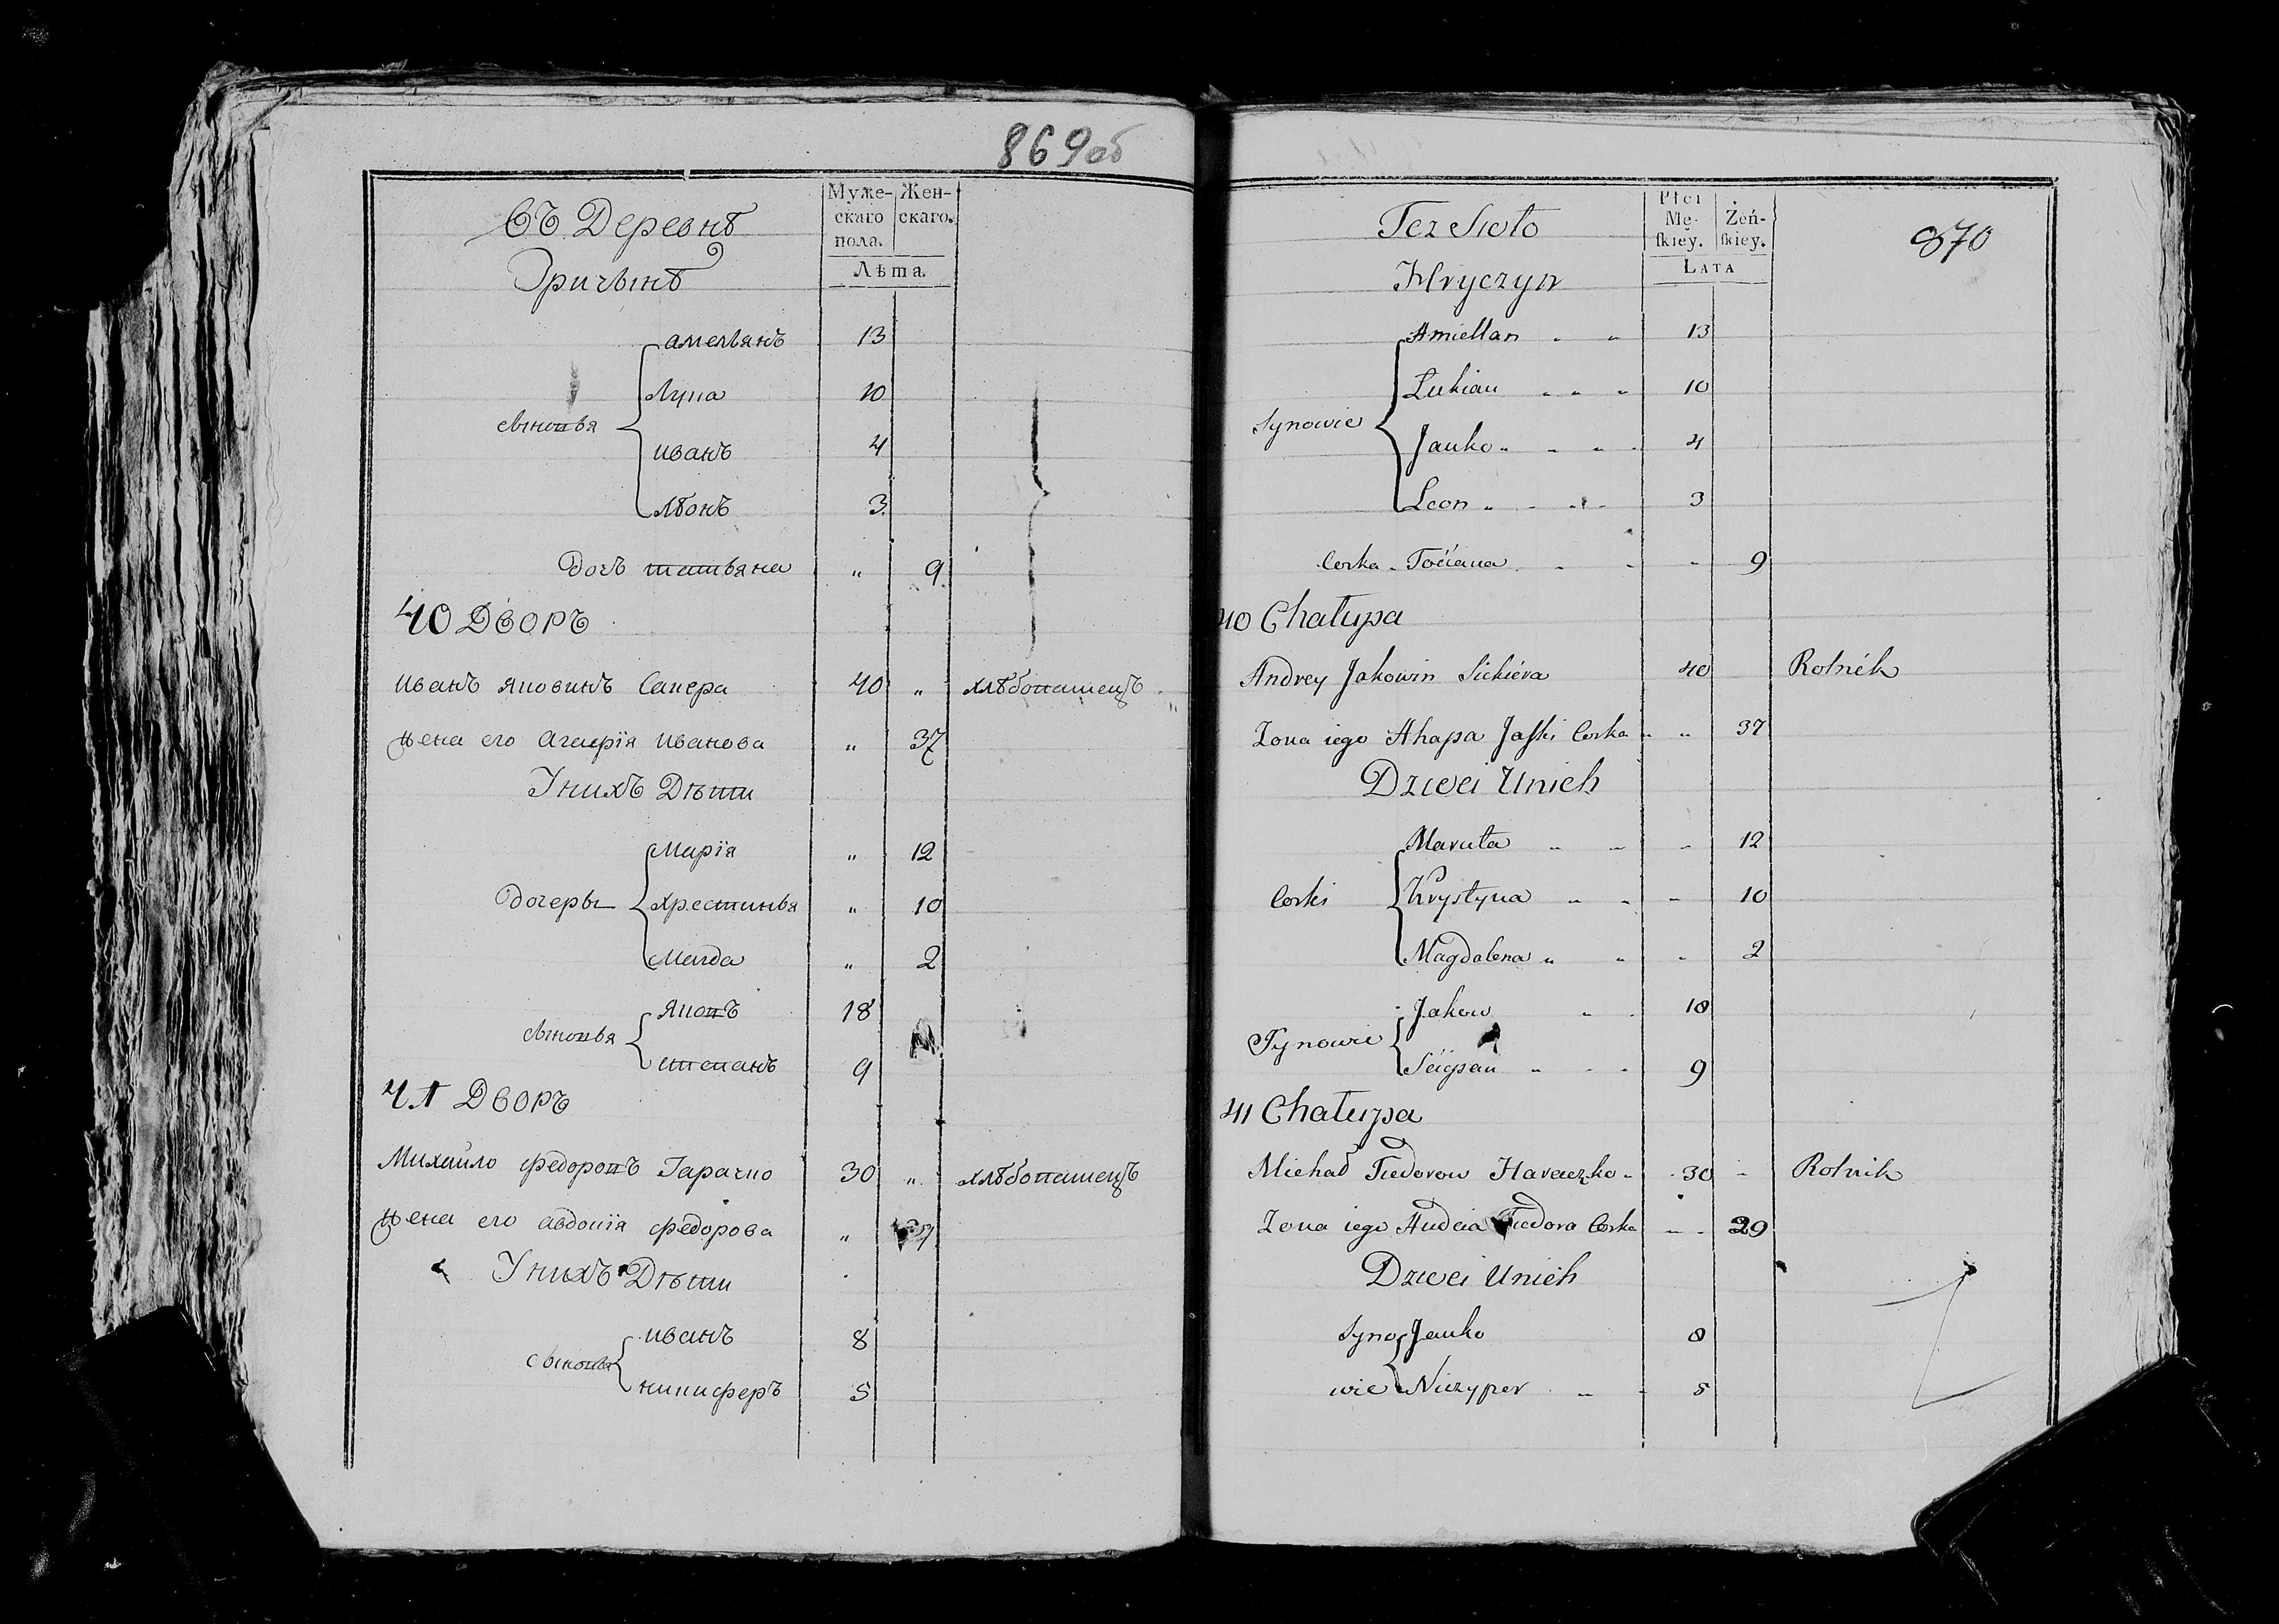 869 об
Муже- Жен-
скаго скаго.
пола.
Лѣта.
Въ Деревнѣ
Гричынѣ
амельянъ 13
Лука 10
сыновья
иванъ 4
лѣонъ 3
дочь татьяна " 9
40 Дворъ
иванъ яковинъ Сакера 40 " хлѣбопашецъ
жена его агапія иванова " 37
У нихъ Дѣти
Марія " 12
дочеры хрестинья " 10
Магда " 2
яковъ 18
сыновья
степанъ 9
41 Дворъ
Михайло федоровъ Гарачко 30 " хлѣбопашецъ
жена его авдокія федорова "
У нихъ Дѣти
иванъ 8
сыновья
никиферъ 5
870
Płci
Mę- Żeń-
skiey. skiey.
Lata
Tez Sioło
Hryczyn
Amiellan 13
Lukian 10
Synowie
Janko 4
Leon 3
Corka Tociana " 9
40 Chałupa
Andrey Jakowin Sickiera 40 Rolnik
Zona iego Ahapa Jaski Corka " 37
Dziei Unich
Maruta " 12
Corki Krystyna " 10
Magdalena " 2
Jakow 18
Synowie
Sciepan 9
41 Chałupa
Michał Fiedorow Haraczko 30 " Rolnik
Zona iego Audcia Fiedora Corka " 29
Dziei Unich
Syno Janko 8
wie Niczyper 5